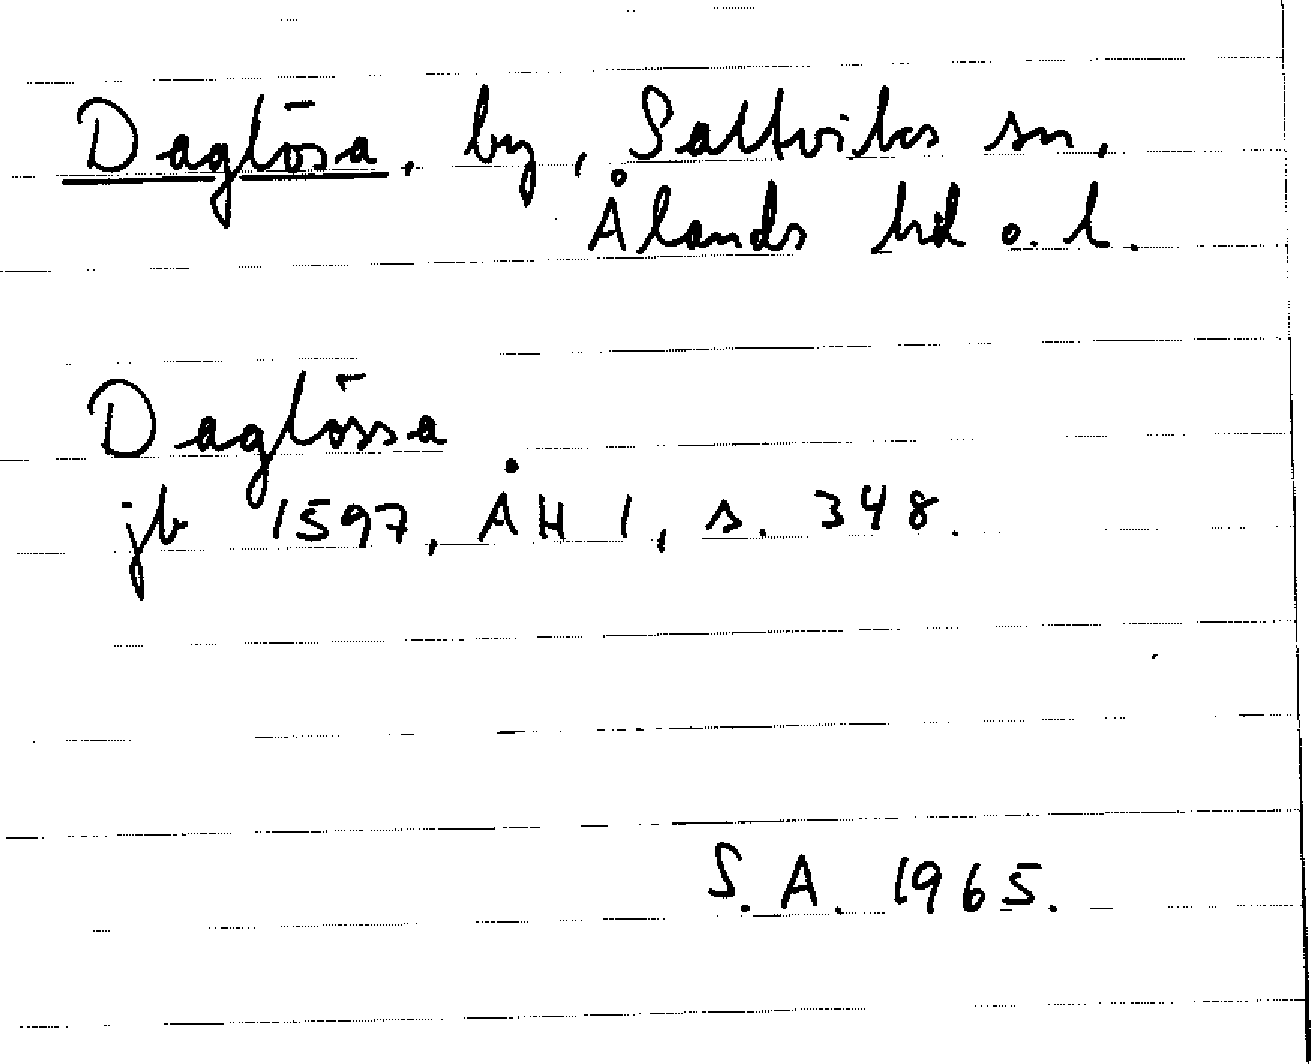 Daglösa, by, Saltviks sn,
Ålands hd o. l.
Daglössa
jb 1597, ÅH 1, s. 348.
S.A. 1965.